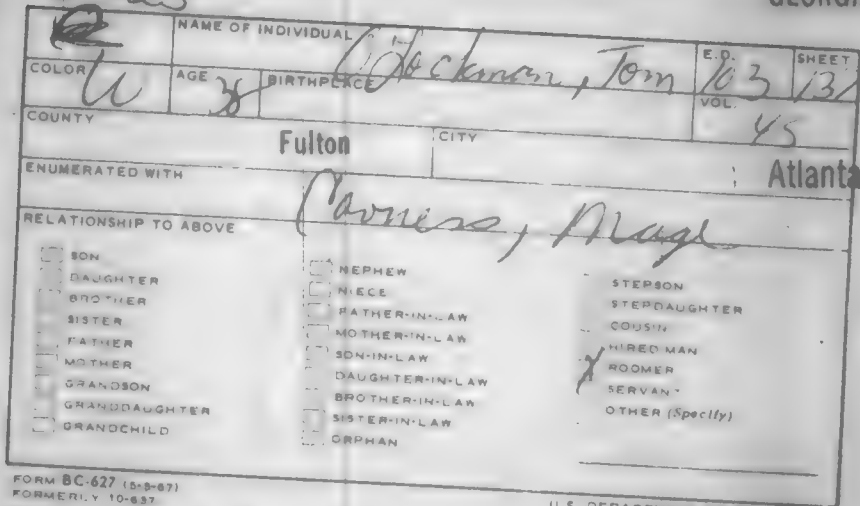 NAME OF INDIVIDUAL
Tom
E.D.
103
SHEET
131
COLOR
W
AGE
38
BIRTHPLACE
VOL.
45
COUNTY
Fulton
CITY
Atlanta
ENUMERATED WITH
RELATIONSHIP TO ABOVE
SON
DAUGHTER
BROTHER
SISTER
FATHER
MOTHER
GRANDSON
GRANDDAUGHTER
GRANDCHILD
NEPHEW
NIECE
FATHER-IN-LAW
MOTHER-IN-LAW
SON-IN-LAW
DAUGHTER-IN-LAW
BROTHER-IN-LAW
SISTER-IN-LAW
ORPHAN
STEPSON
STEPDAUGHTER
COUSIN
HIRED MAN
X ROOMER
SERVANT
OTHER (Specify)
FORM BC-627
FORMERLY 10-637
U.S.